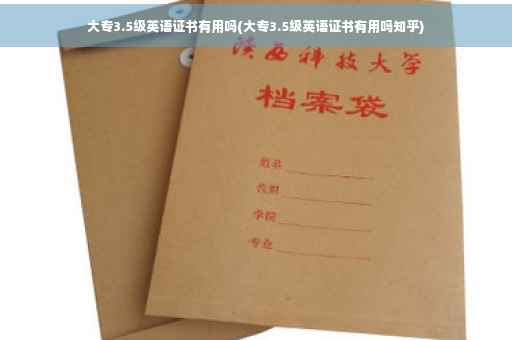 大专3.5级英语证书有用吗(大专3.5级英语证书有用吗知乎)
陕西科技大学
档案袋
姓名
学院
专业